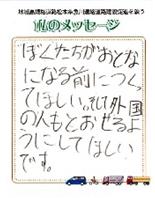 私のメッセージ
ぼくたちがおとな
になる前につくっ
てほしい。そして外国
の人もとおせるよ
うにしてほしい
です。